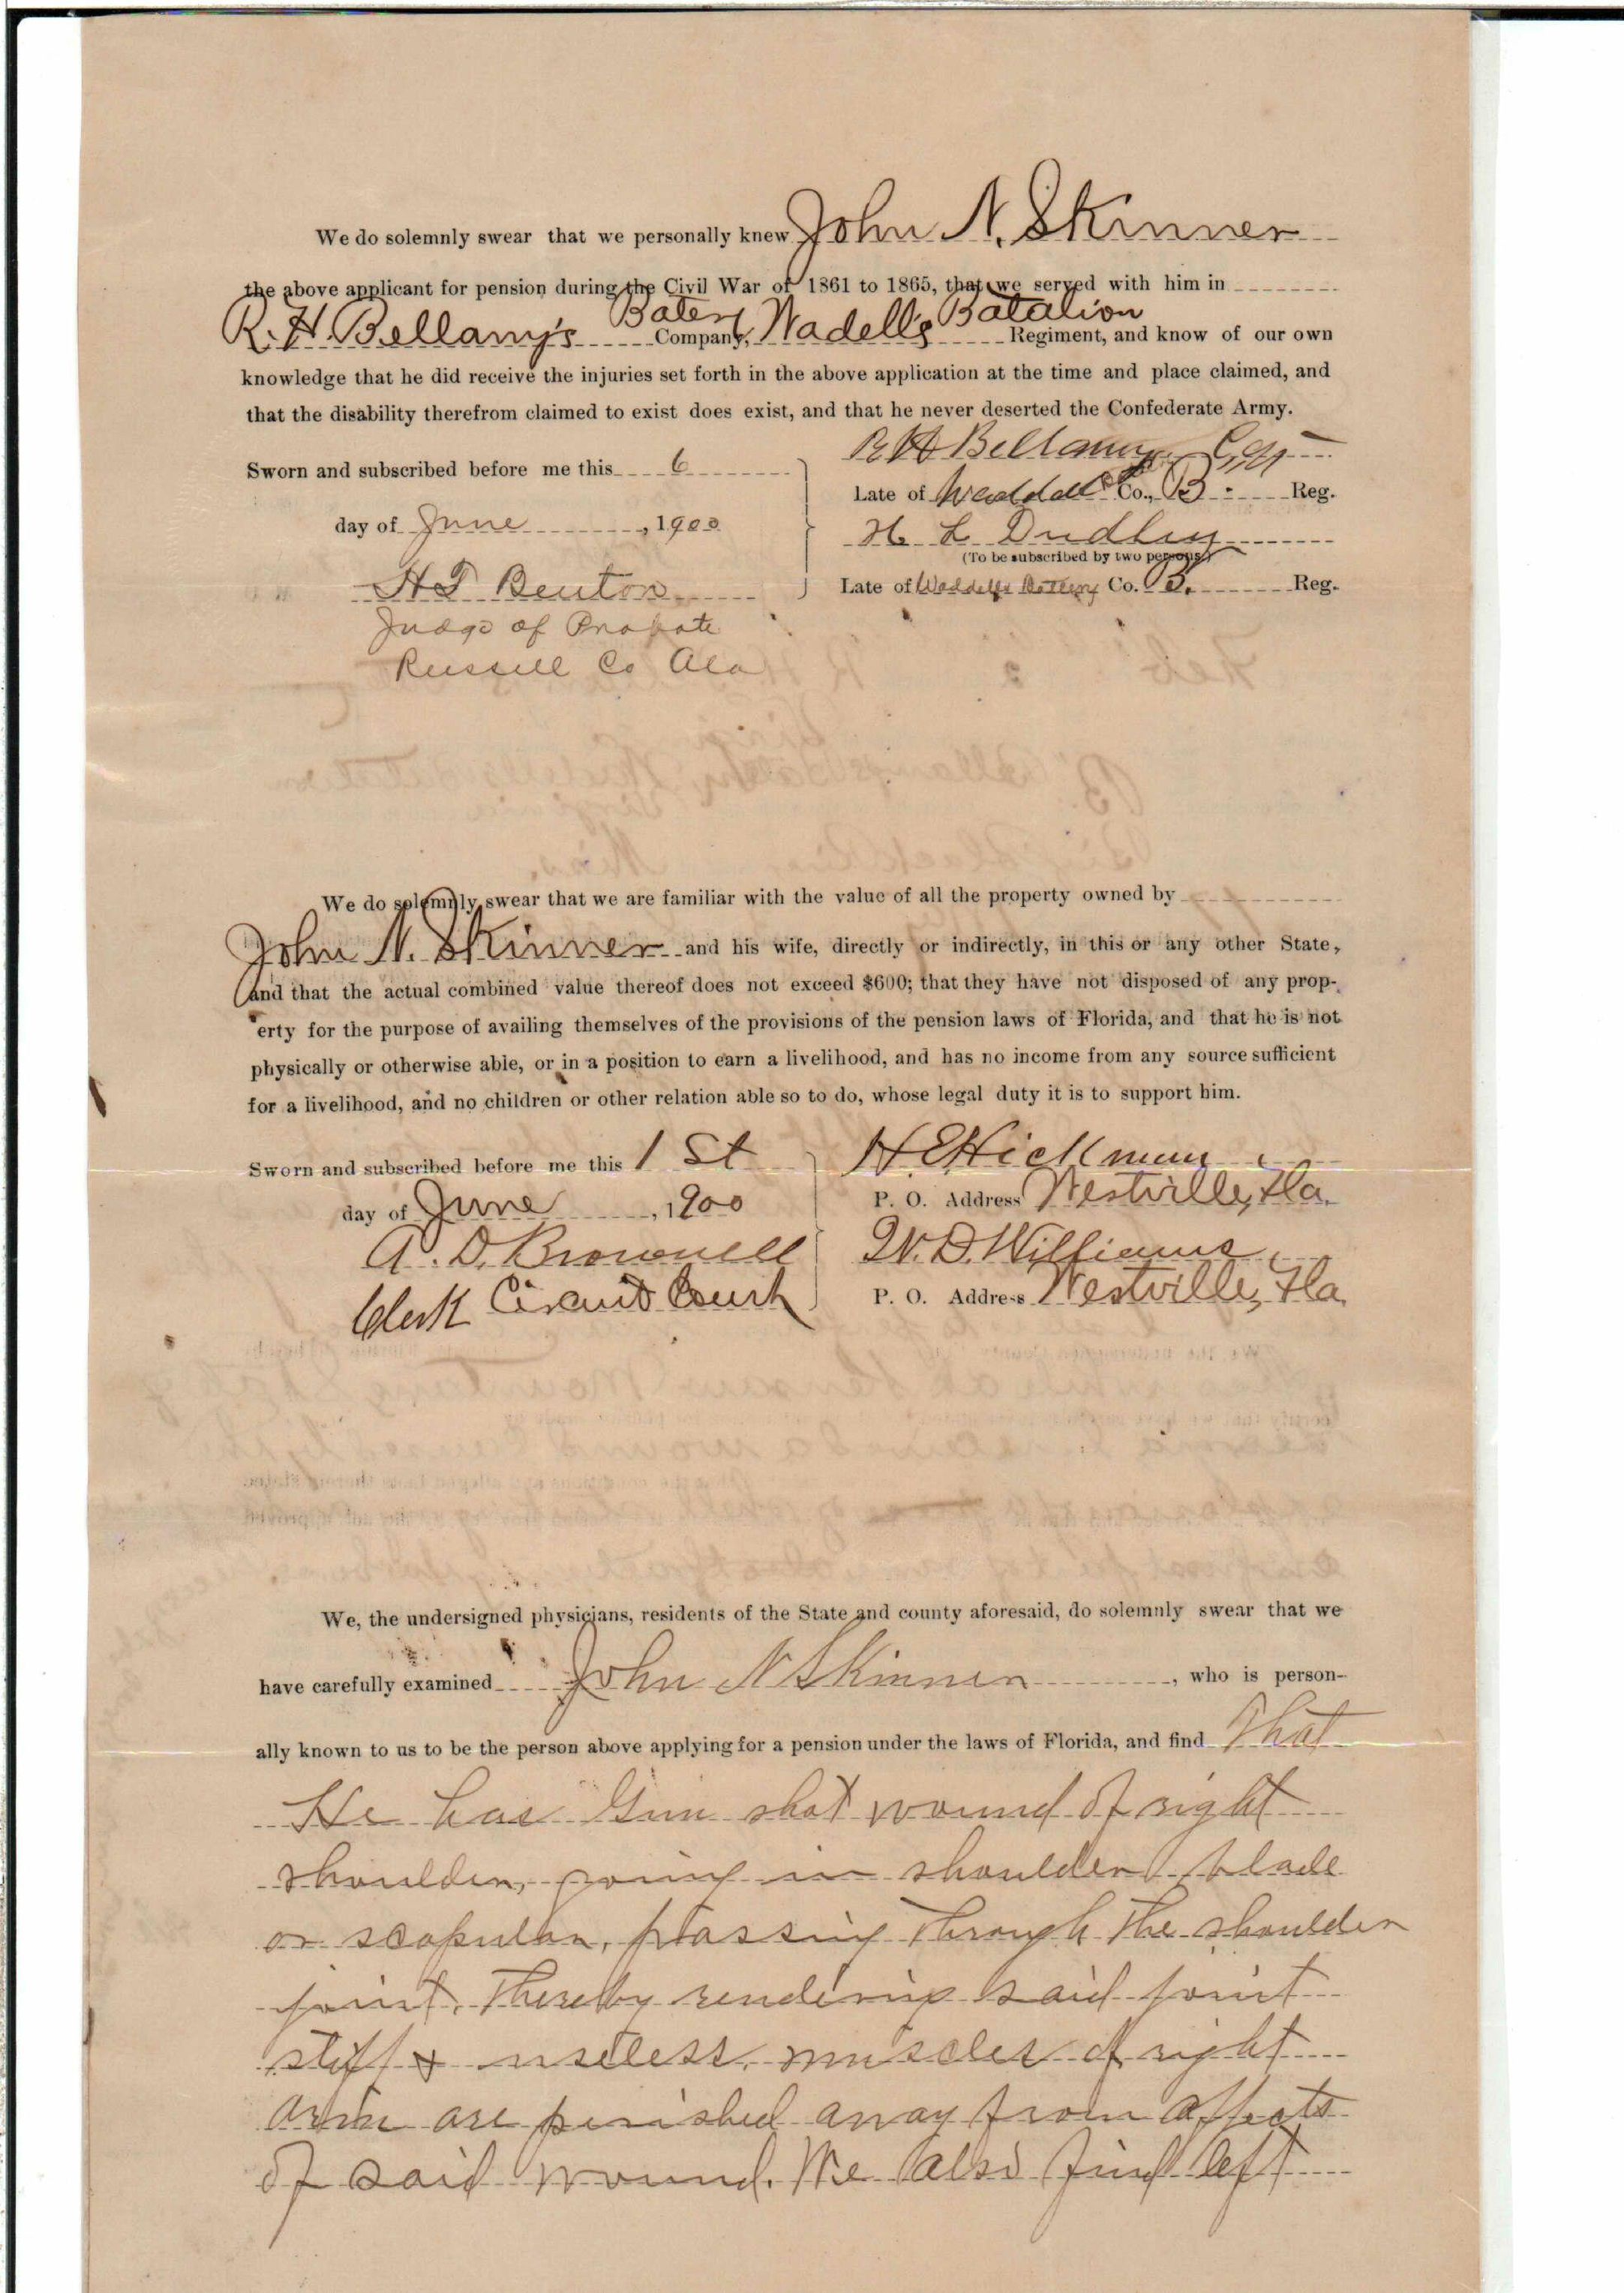 We do solemnly swear that we personally knew John N. Skinner
the above applicant for pension during the Civil War of 1861 to 1865, that we served with him in
R. H. Bellamy's Batery Company, Wadell's Batalion Regiment, and know of our own
knowledge that he did receive the injuries set forth in the above application at the time and place claimed, and
that the disability therefrom claimed to exist does exist, and that he never deserted the Confederate Army.
R H Bellamy
Sworn and subscribed before me this 6
Late of Waddell Co., B. Reg.
day of June, 1900
H L Dudley
(To be subscribed by two persons)
H T Benton
Late of Waddells Battery Co. B. Reg.
Judge of Probate
Russell Co Ala
We do solemnly swear that we are familiar with the value of all the property owned by
John N. Skinner and his wife, directly or indirectly, in this or any other State,
and that the actual combined value thereof does not exceed $600; that they have not disposed of any prop-
erty for the purpose of availing themselves of the provisions of the pension laws of Florida, and that he is not
physically or otherwise able, or in a position to earn a livelihood, and has no income from any source sufficient
for a livelihood, and no children or other relation able so to do, whose legal duty it is to support him.
Sworn and subscribed before me this 1 St
H E Hickman
P. O. Address Westville, Fla.
day of June, 1900
A. D. Brownell
W. D. Williams
Clerk Circuit Court
P. O. Address Westville, Fla.
We, the undersigned physicians, residents of the State and county aforesaid, do solemnly swear that we
have carefully examined John N Skinner, who is person-
ally known to us to be the person above applying for a pension under the laws of Florida, and find That
He has Gun shot wound of right
shoulder, going in shoulder blade
or scapular, passing through the shoulder
joint. Thereby rendering said joint
stiff & useless. muscles of right
arm are perished away from affects
of said wound. We also find left